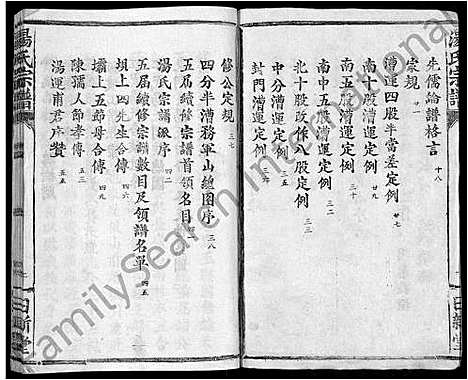 湯氏宗譜
先儒論譜格言 十八
家規 二一
漕運四股半當差定例 廿七
南十股漕運定例 廿九
南五股漕運定例 三十
南中五股漕運定例 三一
北十股改作八股定例 三三
中分漕運定例
封門漕運定例
日新堂
修公定規 三七
四分半漕務軍山總圖序 三八
五届續修宗譜首領名目
湯氏宗譜派序 四二
五届續修宗譜數目及領譜名單 四五
垻上四先生合傳 四六
壩上五節母合傳 四九
陳孺人節孝傳
湯運甫君序贊 五五
湯氏宗譜
日新堂
FamilySearch International